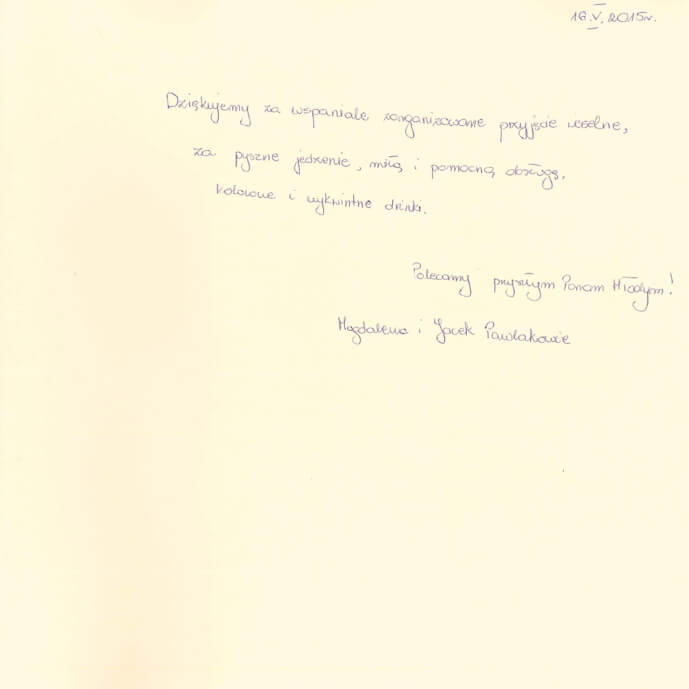 16.V.2015r.
Dziękujemy za wspaniale zorganizowane przyjęcie weselne,
za pyszne jedzenie, miłą i pomocną obsługę,
kolorowe i wykwintne drinki.
Polecamy przyszłym Parom Młodym!
Magdalena i Jacek Pawlakowie